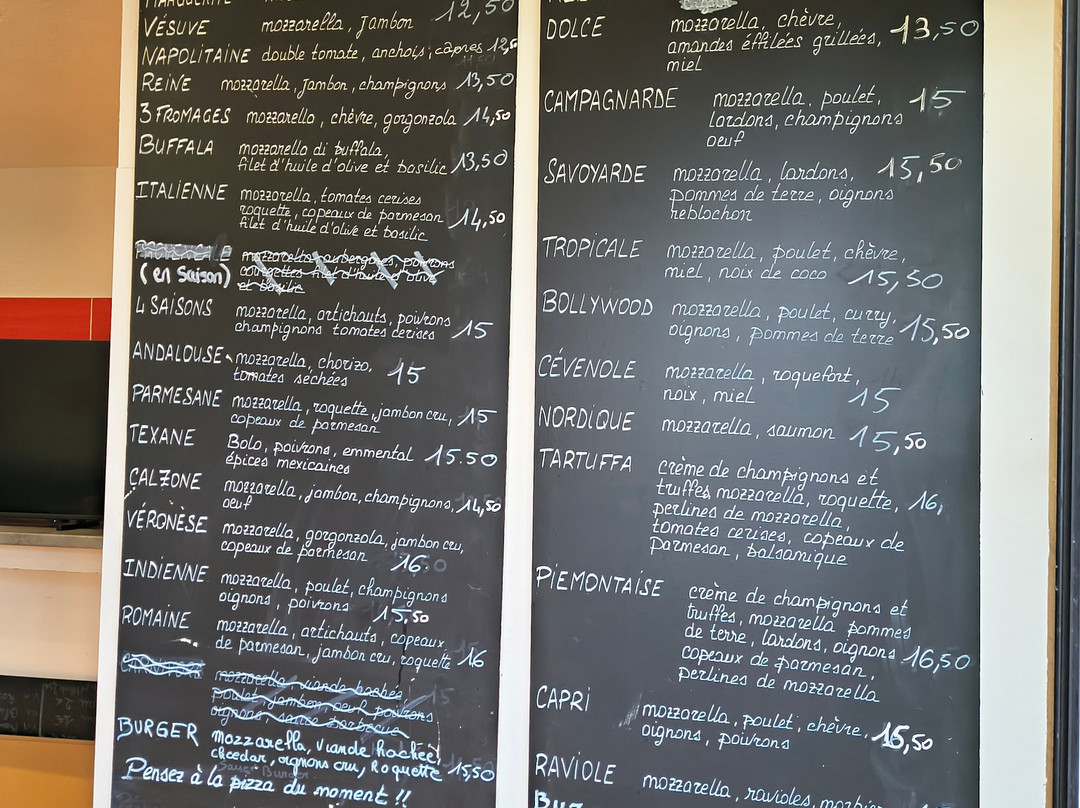 MARGUERITE
12,50
VÉSUVE mozzarella, jambon
NAPOLITAINE double tomate, anchois, câpres
REINE mozzarella, jambon, champignons 13,50
3 FROMAGES mozzarella, chèvre, gorgonzola 14,50
BUFFALA mozzarella di buffala
filet d'huile d'olive et basilic 13,50
ITALIENNE mozzarella, tomates cerises
roquette, copeaux de parmesan 14,50
filet d'huile d'olive et basilic
mozzarella, aubergines, poivrons
(en Saison) courgettes filet d'huile d'olive
et basilic
4 SAISONS mozzarella, artichauts, poivrons
champignons tomates cerises 15
ANDALOUSE mozzarella, chorizo,
tomates séchées 15
PARMESANE mozzarella, roquette, jambon cru, 15
copeaux de parmesan
TEXANE Bolo, poivrons, emmental 15.50
épices mexicaines
CALZONE mozzarella, jambon, champignons, 14,50
oeuf
VÉRONÈSE mozzarella, gorgonzola, jambon cru,
copeaux de parmesan 16
INDIENNE mozzarella, poulet, champignons
oignons, poivrons 15,50
ROMAINE mozzarella, artichauts, copeaux
de parmesan, jambon cru, roquette 16
mozzarella, viande hachée,
poulet, jambon, oeuf, poivrons
oignons sauce barbecue
BURGER Mozzarella, viande hachée,
cheedar, oignons cru, Roquette 15,50
Sauce Burger
Pensez à la pizza du moment !!
DOLCE mozzarella, chèvre, 13,50
amandes éffilées grillées,
miel
CAMPAGNARDE mozzarella, poulet, 15
lardons, champignons
oeuf
SAVOYARDE mozzarella, lardons, 15,50
pommes de terre, oignons
reblochon
TROPICALE mozzarella, poulet, chèvre,
miel, noix de coco 15,50
BOLLYWOOD mozzarella, poulet, curry,
oignons, pommes de terre 15,50
CÉVENOLE mozzarella, roquefort,
noix, miel 15
NORDIQUE mozzarella, saumon 15,50
TARTUFFA crème de champignons et
truffes mozzarella, roquette, 16,
perlines de mozzarella,
tomates cerises, copeaux de
Parmesan, balsamique
PIEMONTAISE crème de champignons et
truffes, mozzarella pommes
de terre, lardons, oignons
copeaux de parmesan, 16,50
perlines de mozzarella
CAPRI mozzarella, poulet, chèvre,
oignons, poivrons 15,50
RAVIOLE mozzarella, ravioles, morbier